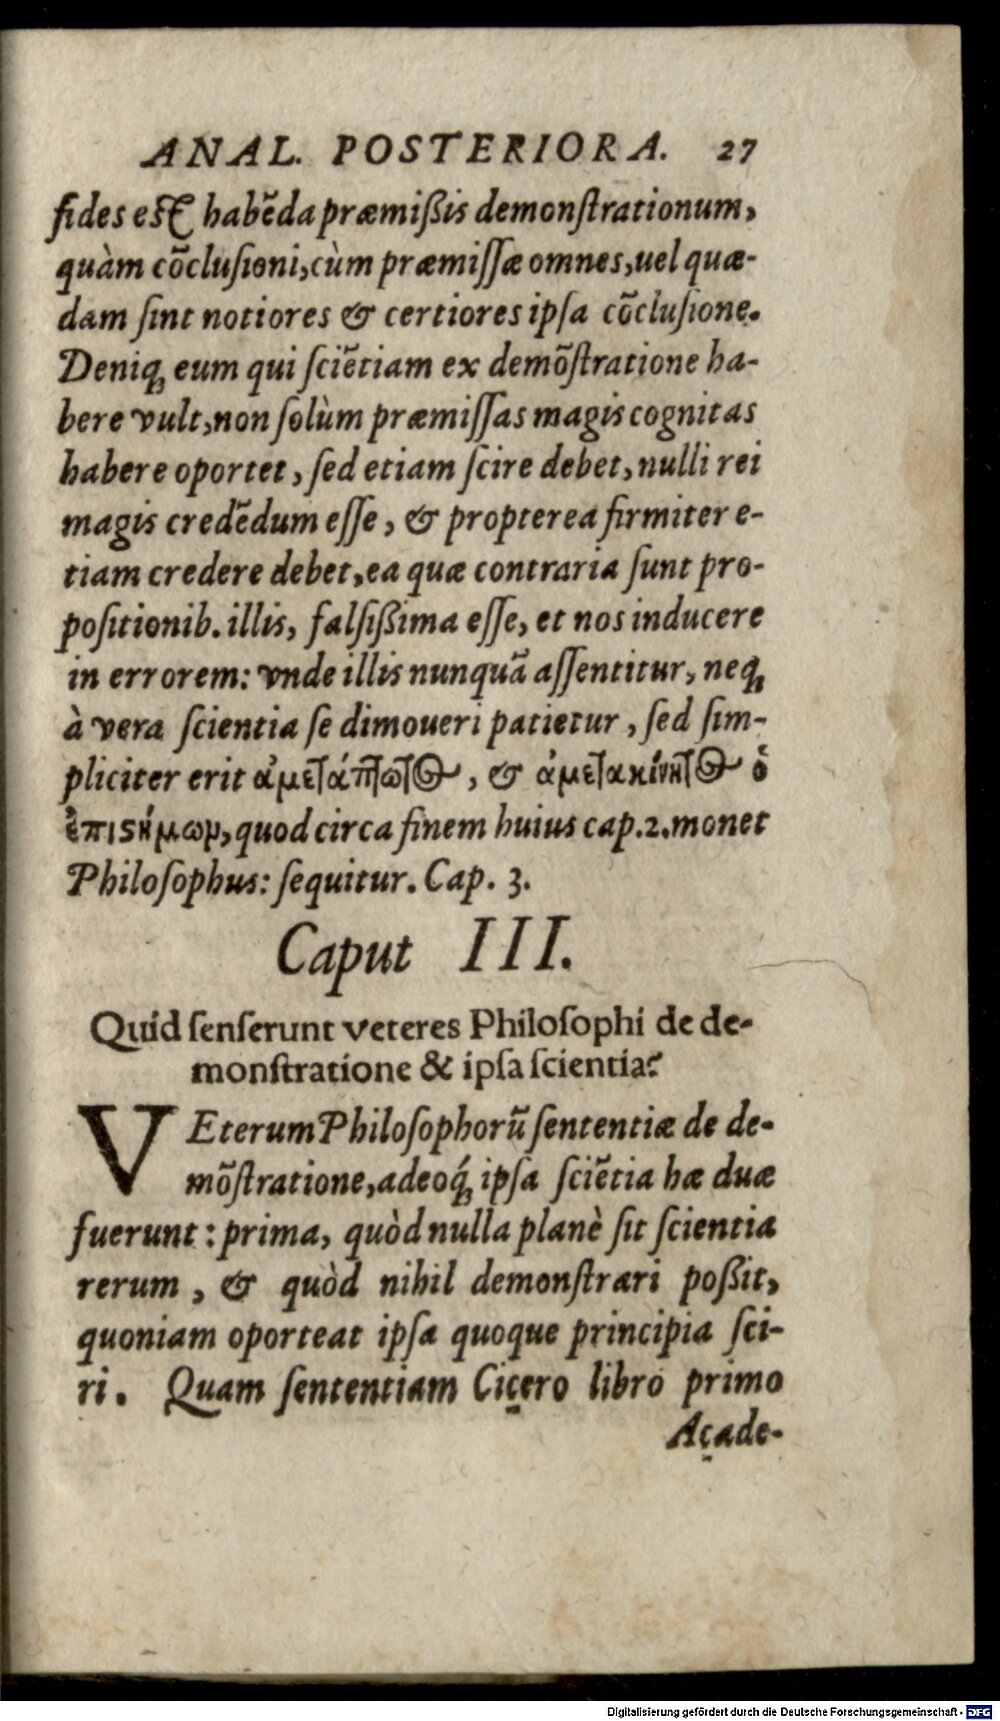 ANAL. POSTERIORA. 27
fides est habẽda præmißis demonſtrationum,
quàm cõcluſioni, cùm præmiſſæ omnes, uel quæ-
dam ſint notiores & certiores ipſa cõcluſione.
Deniqꝫ eum qui ſciẽtiam ex demõſtratione ha-
bere vult, non ſolùm præmiſſas magis cognitas
habere oportet, ſed etiam ſcire debet, nulli rei
magis credẽdum eſſe, & propterea firmiter e-
tiam credere debet, ea quæ contraria ſunt pro-
poſitionib. illis, falſißima eſſe, et nos inducere
in errorem: vnde illis nunquã aſſentitur, neqꝫ
à vera ſcientia ſe dimoueri patietur, ſed ſim-
pliciter erit ἀμετάπτωτος, & ἀμετακίνητος ὁ
ἐπιϛήμων, quod circa finem huius cap. 2. monet
Philoſophus: ſequitur. Cap. 3.
Caput III.
Quid ſenſerunt veteres Philoſophi de de-
monſtratione & ipſa ſcientia?
VEterum Philoſophorũ ſententiæ de de-
mõſtratione, adeoq́ꝫ ipſa ſciẽtia hæ duæ
fuerunt: prima, quòd nulla planè ſit ſcientia
rerum, & quòd nihil demonſtrari poßit,
quoniam oporteat ipſa quoque principia ſci-
ri. Quam ſententiam Cicero libro primo
Acade-
Digitalisierung gefördert durch die Deutsche Forschungsgemeinschaft - DFG